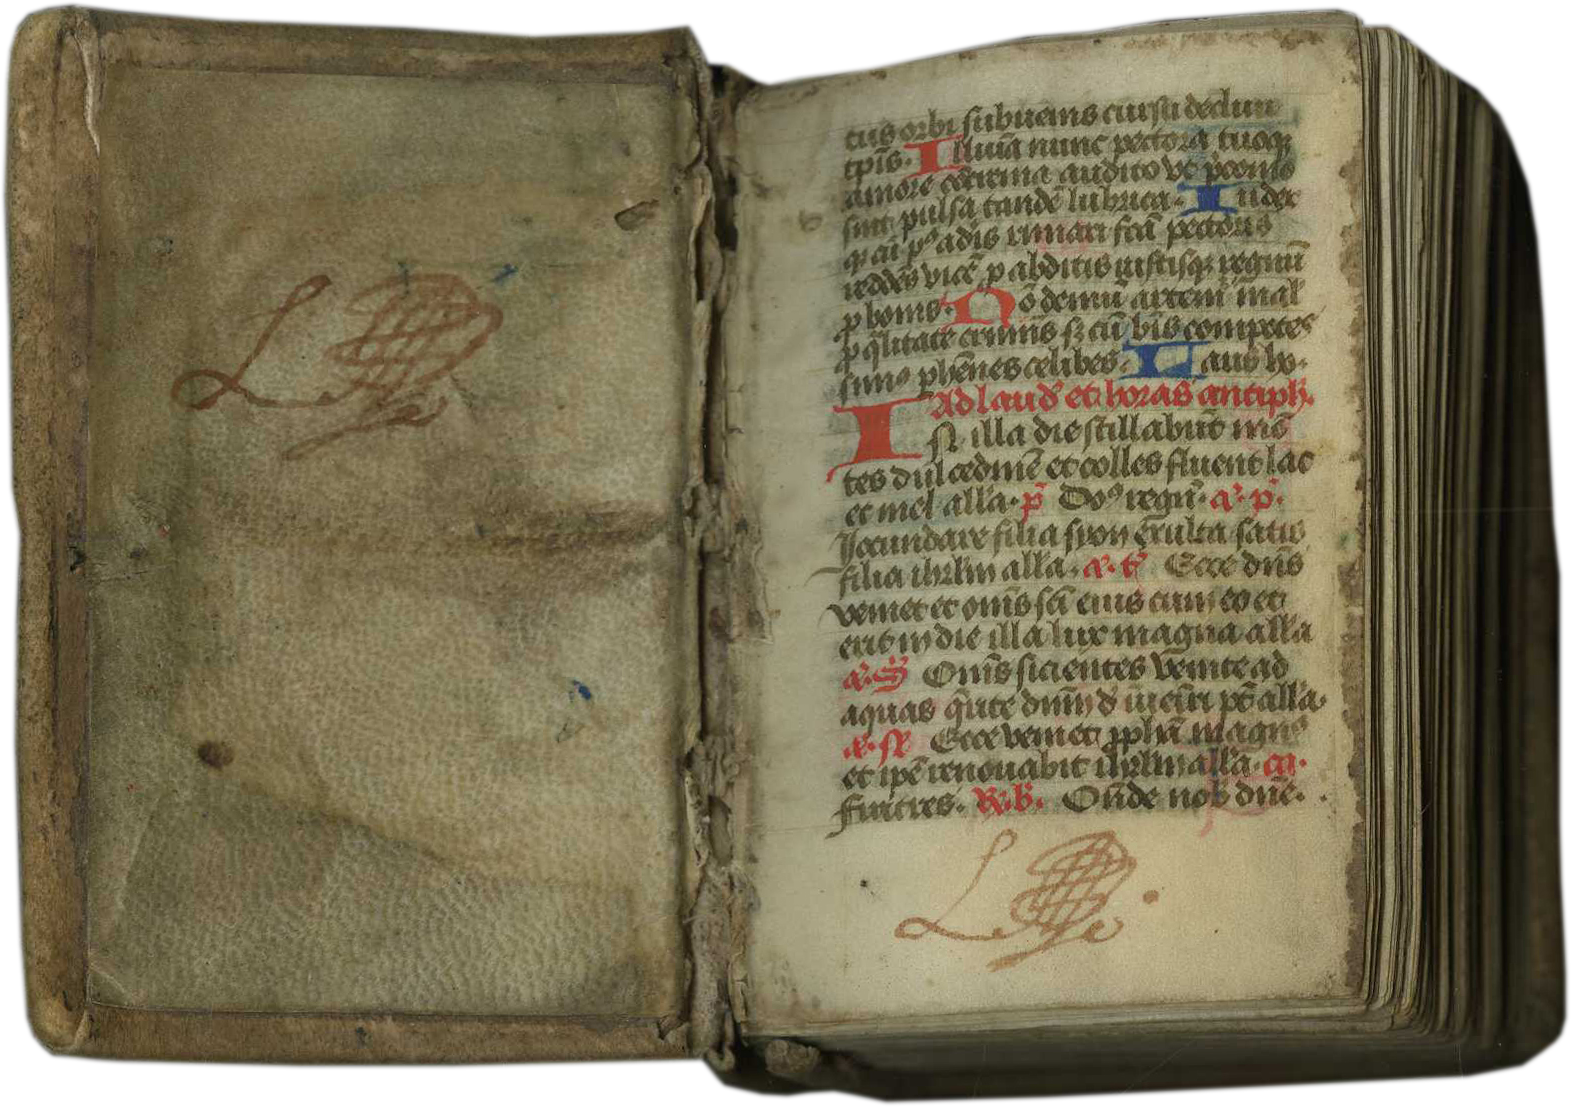 tus orbi subueniens cursu decliui
tp̄is. Illuīa nunc pectora tuoqꝫ
amore cōcrema audito vt p̄conio
sint pulsa tandē lubrica. Iudex
q̄ p9 adis rimari fcā pectoris
reddēs vicē p abditis iustisqꝫ regnū
ꝓ bonis. Nō demū artemur mal
ꝓ q̄litate criminis sꝫ cū btīs compotes
sim9 phēnes celibes. Laus ho.
Ad laud et horas antiph.
IN illa die stillabūt mō
tes dulcedinē et colles fluent lac
et mel alla. p̄ Dn̄s regn. a. p.
Jocundare filia syon exulta satis
filia ihrlm alla. a. t Ecce dn̄s
veniet et om̄s sci eius cum eo et
erit in die illa lux magna alla
a. S Om̄s sicientes venite ad
aquas q̄rite dnm d inueniri pt̄ alla.
a. Ecce veniet ꝓpha magnus
et ip̄e renouabit ihrlm alla. ca.
fratres. R. b. Ostēde nob dn̄e.